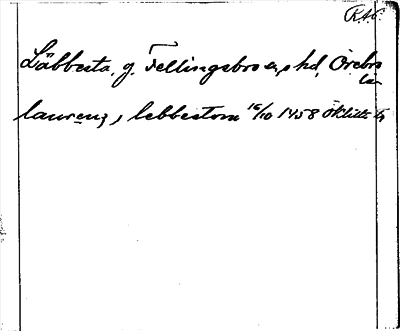 RA6.
Läbbesta, g. Fellingsbro s, o hd, Örebro
län
laurenz, lebbestom 16/10 1458